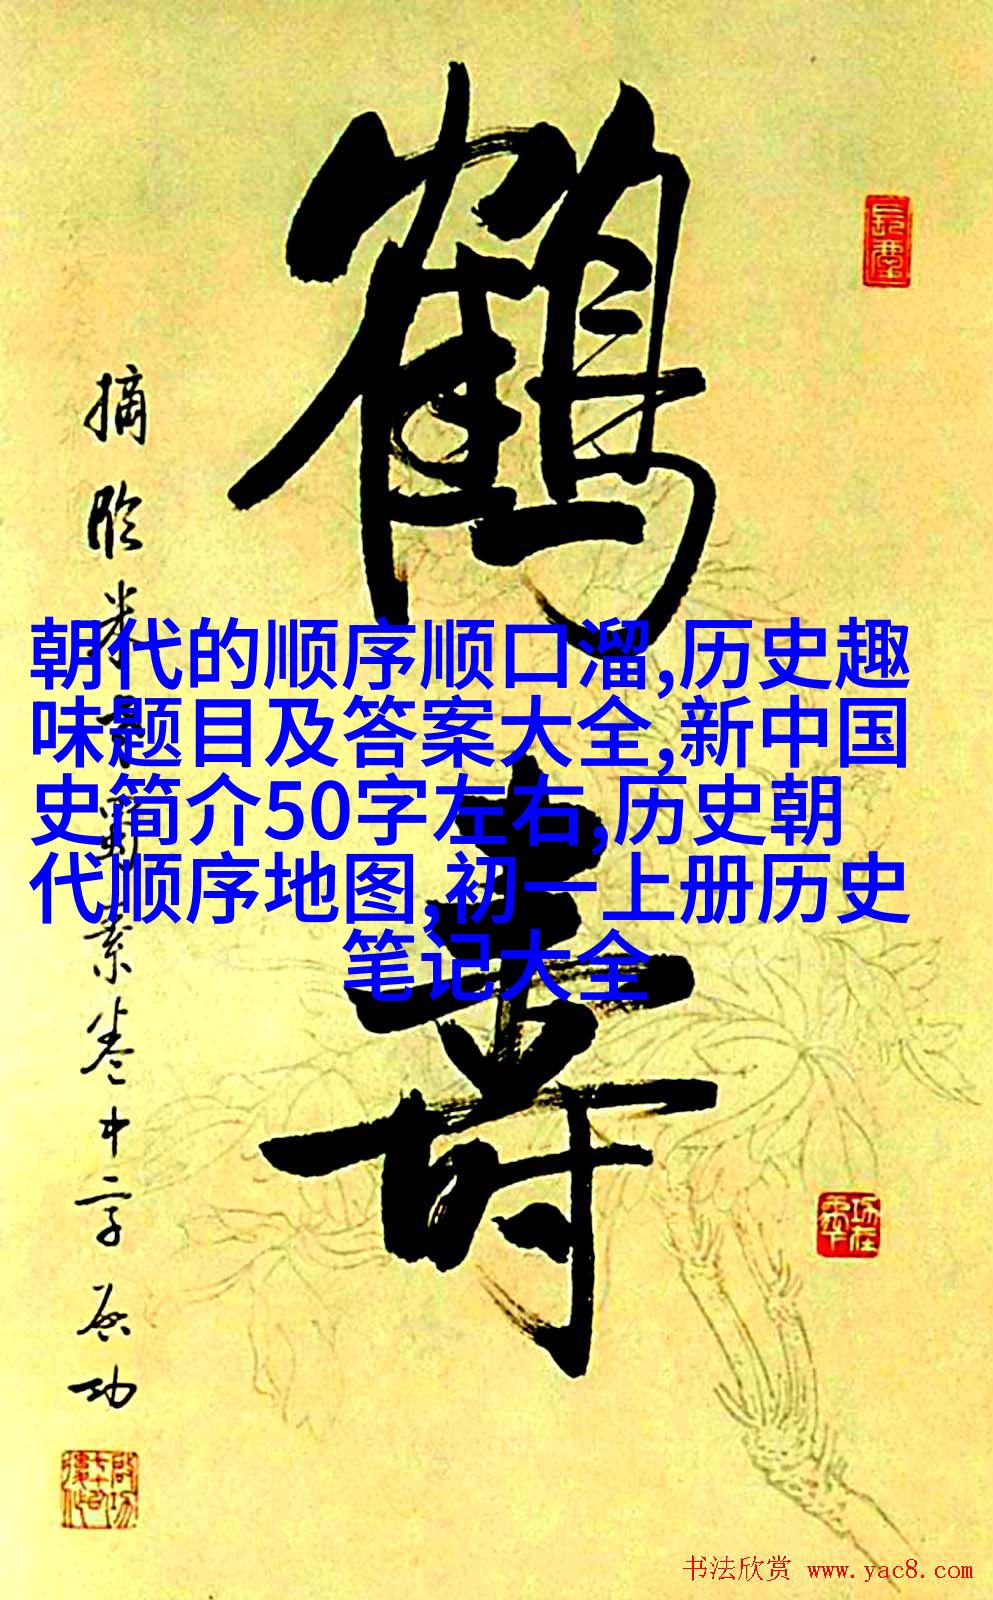 鹤寿
朝代的顺序顺口溜,历史趣
味题目及答案大全,新中国
史简介50字左右,历史朝
代顺序地图,初一上册历史
笔记大全
启功
书法欣赏 www.yac8.com